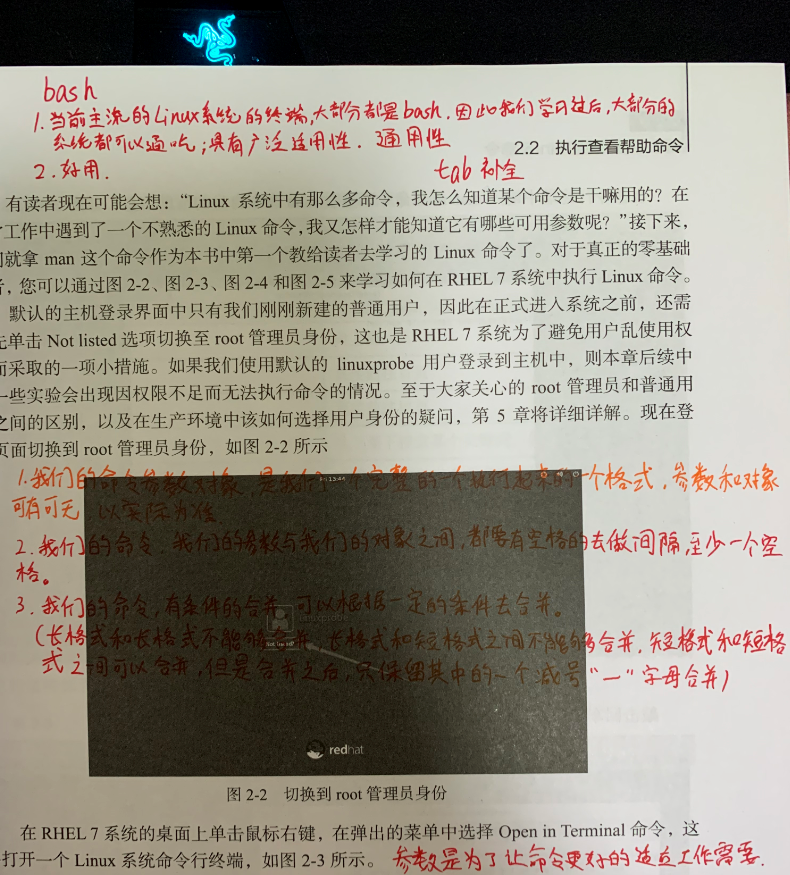 bash
1.当前主流的Linux系统的终端,大部分都是bash.因此我们学习过后,大部分的
系统都可以通吃;具有广泛适用性.通用性
2.2 执行查看帮助命令
2.好用.
tab 补全
有读者现在可能会想：“Linux 系统中有那么多命令，我怎么知道某个命令是干嘛用的？在
工作中遇到了一个不熟悉的 Linux 命令，我又怎样才能知道它有哪些可用参数呢？”接下来，
就拿 man 这个命令作为本书中第一个教给读者去学习的 Linux 命令了。对于真正的零基础
，您可以通过图 2-2、图 2-3、图 2-4 和图 2-5 来学习如何在 RHEL 7 系统中执行 Linux 命令。
默认的主机登录界面中只有我们刚刚新建的普通用户，因此在正式进入系统之前，还需
单击 Not listed 选项切换至 root 管理员身份，这也是 RHEL 7 系统为了避免用户乱使用权
而采取的一项小措施。如果我们使用默认的 linuxprobe 用户登录到主机中，则本章后续中
一些实验会出现因权限不足而无法执行命令的情况。至于大家关心的 root 管理员和普通用
之间的区别，以及在生产环境中该如何选择用户身份的疑问，第 5 章将详细详解。现在登
页面切换到 root 管理员身份，如图 2-2 所示
1.我们的命令参数对象,是我们一个完整的一个执行起来的一个格式,参数和对象
可有可无 以实际为准
2.我们的命令.我们的参数与我们的对象之间,都要有空格的去做间隔,至少一个空
格。
3.我们的命令,有条件的合并 可以根据一定的条件去合并。
linuxprobe
Not listed?
(长格式和长格式不能够合并,长格式和短格式之间不能够合并,短格式和短格
式之间可以合并,但是合并之后,只保留其中的一个减号“—”字母合并)
redhat
图 2-2 切换到 root 管理员身份
在 RHEL 7 系统的桌面上单击鼠标右键，在弹出的菜单中选择 Open in Terminal 命令，这
打开一个 Linux 系统命令行终端，如图 2-3 所示。
参数是为了让命令更好的适应工作需要.